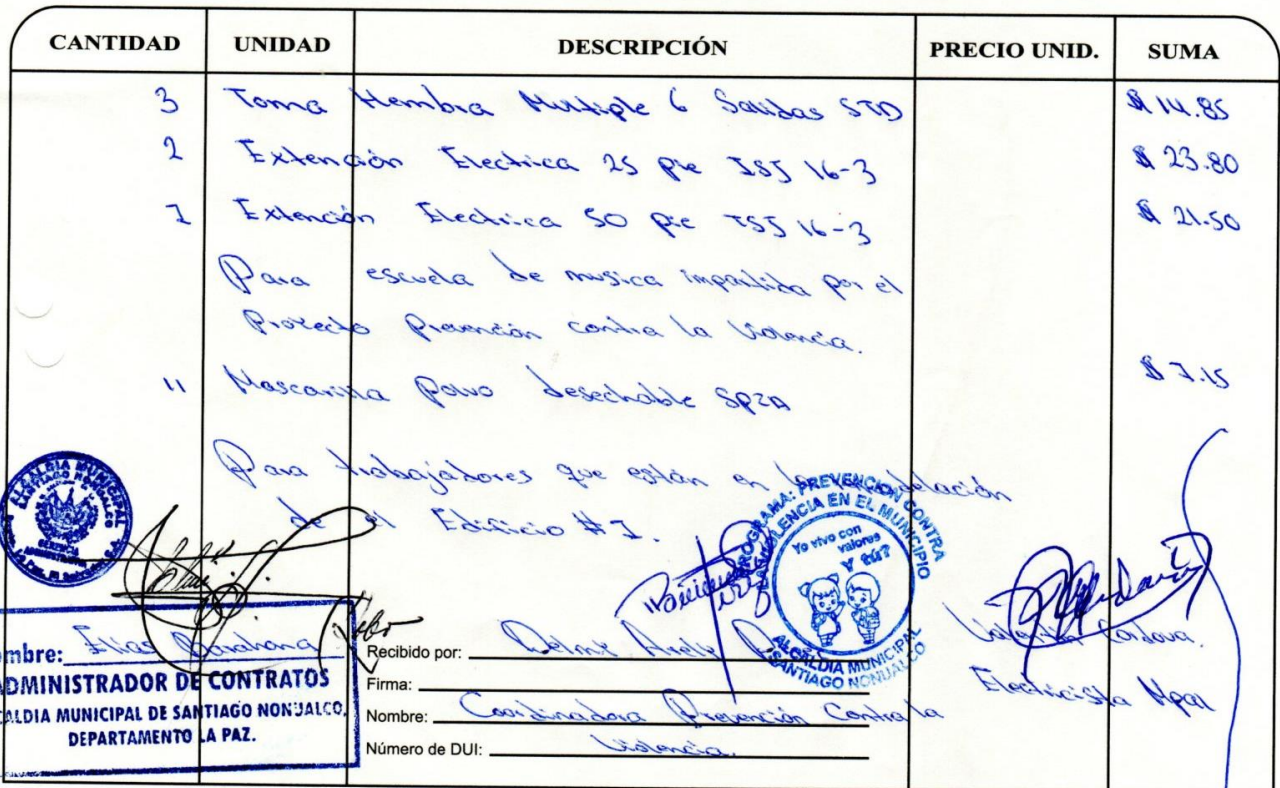 CANTIDAD UNIDAD DESCRIPCIÓN PRECIO UNID. SUMA
3 Toma Hembra Multiple 6 Salidas STD $ 14.85
2 Extención Electrica 25 pie TSJ 16-3 $ 23.80
1 Extención Electrica 50 pie TSJ 16-3 $ 21.50
Para escuela de musica impartida por el
Proyecto Prevención contra la Violencia.
11 Mascarilla polvo desechable $ 7.15
Para trabajadores que están en
de el Edificio #1.
ALCALDIA MUNICIPAL
SANTIAGO NONUALCO
GERENCIA
ADMINISTRATIVA
PROGRAMA: PREVENCION CONTRA
LA VIOLENCIA EN EL MUNICIPIO
Yo vivo con
valores
Y tú?
ALCALDIA MUNICIPAL
SANTIAGO NONUALCO
mbre: Elias Barahona
ADMINISTRADOR DE CONTRATOS
CALDIA MUNICIPAL DE SANTIAGO NONUALCO,
DEPARTAMENTO LA PAZ.
Recibido por:
Firma:
Nombre: Coordinadora Prevención Contra la
Número de DUI: Violencia
Cordova
Electricista Mpal